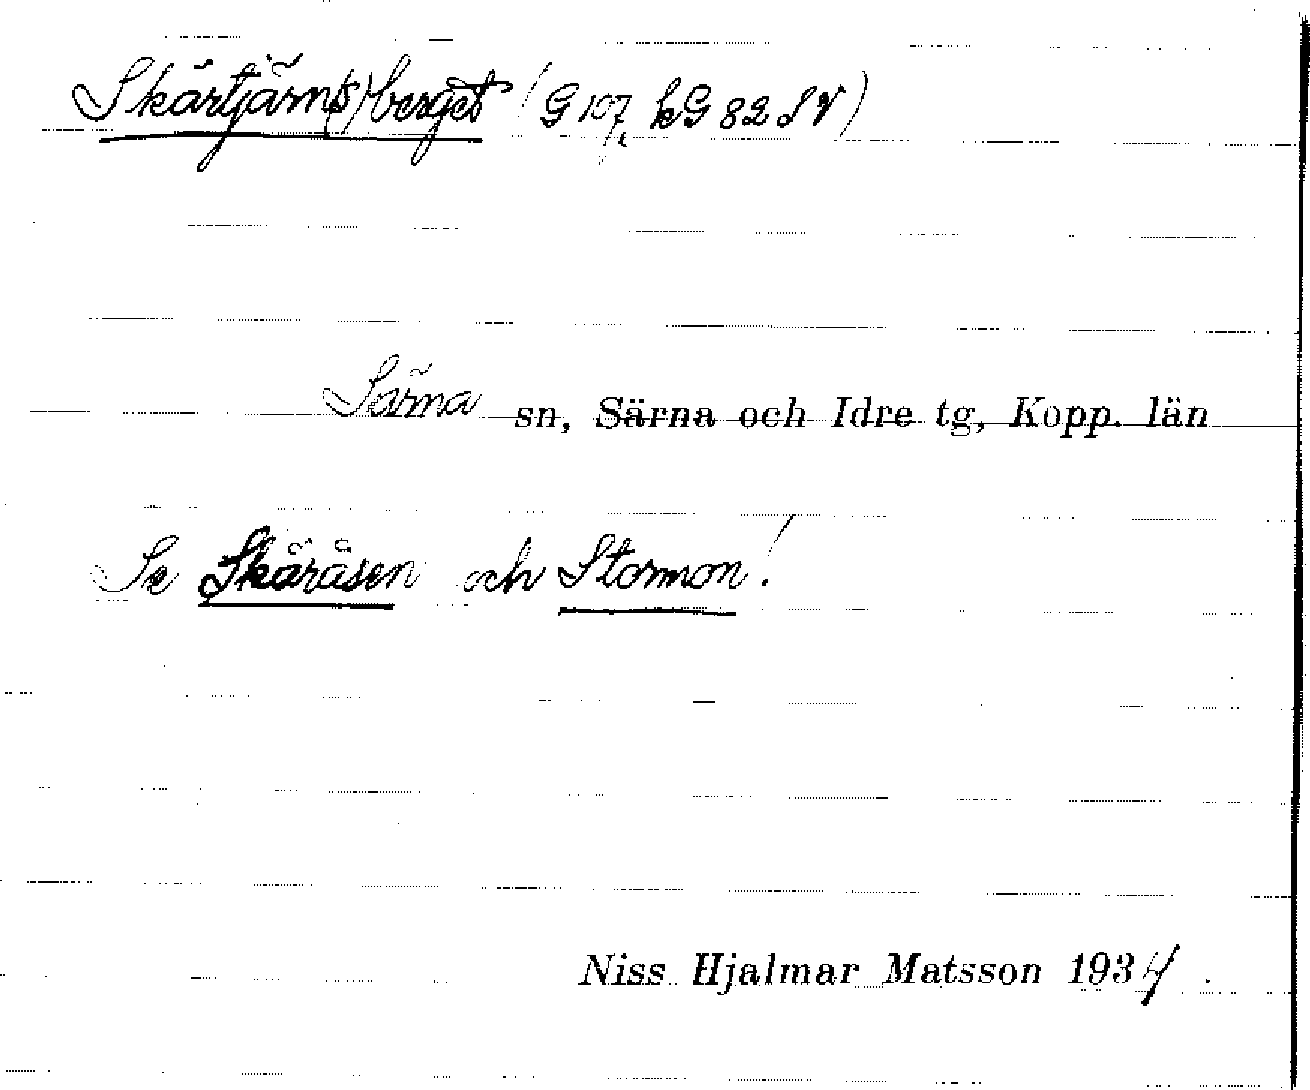 Skärtjärn(s)berget (G 107, kG 82 SV)
Särna sn, Särna och Idre tg, Kopp. län
Se Skäråsen och Stormon!
Niss Hjalmar Matsson 1934.